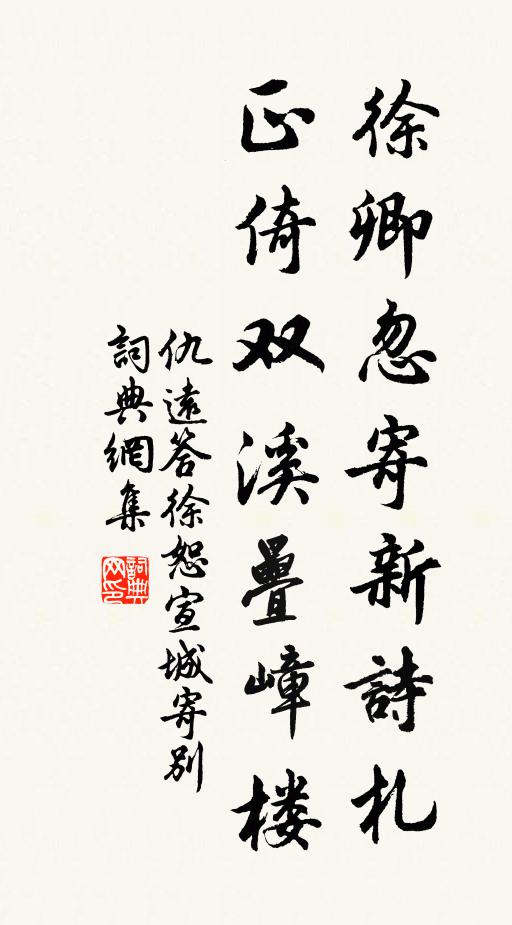 徐卿忽寄新詩札
正倚双溪疊嶂楼
仇遠答徐恕宣城寄别
詞典網集
詞典网印